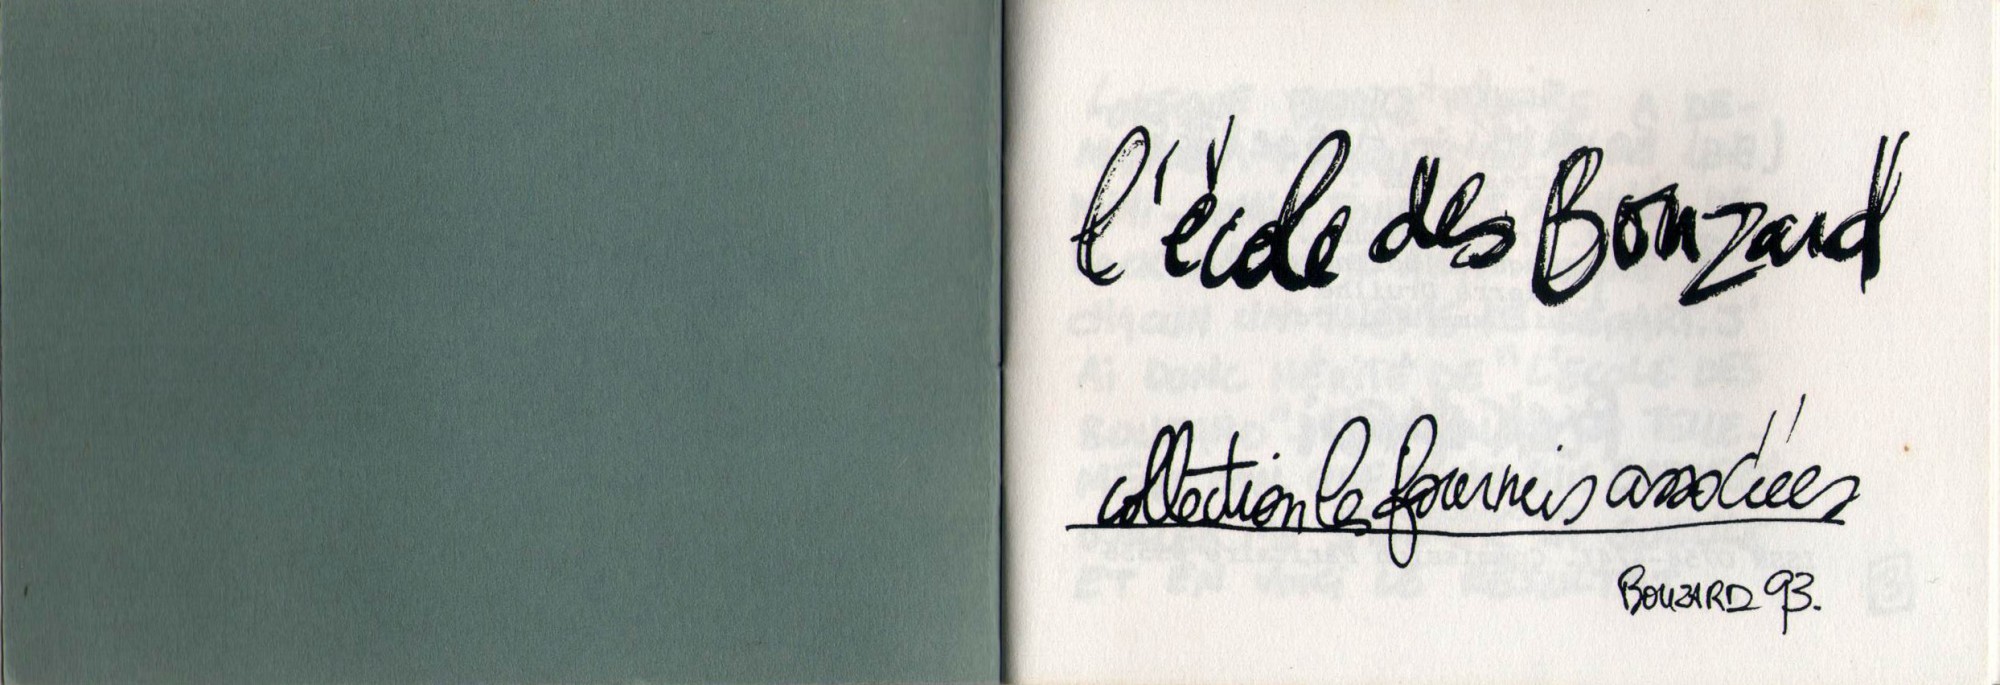 l'école des Bouzard
collection les fourmis associées
BOUZARD 93.